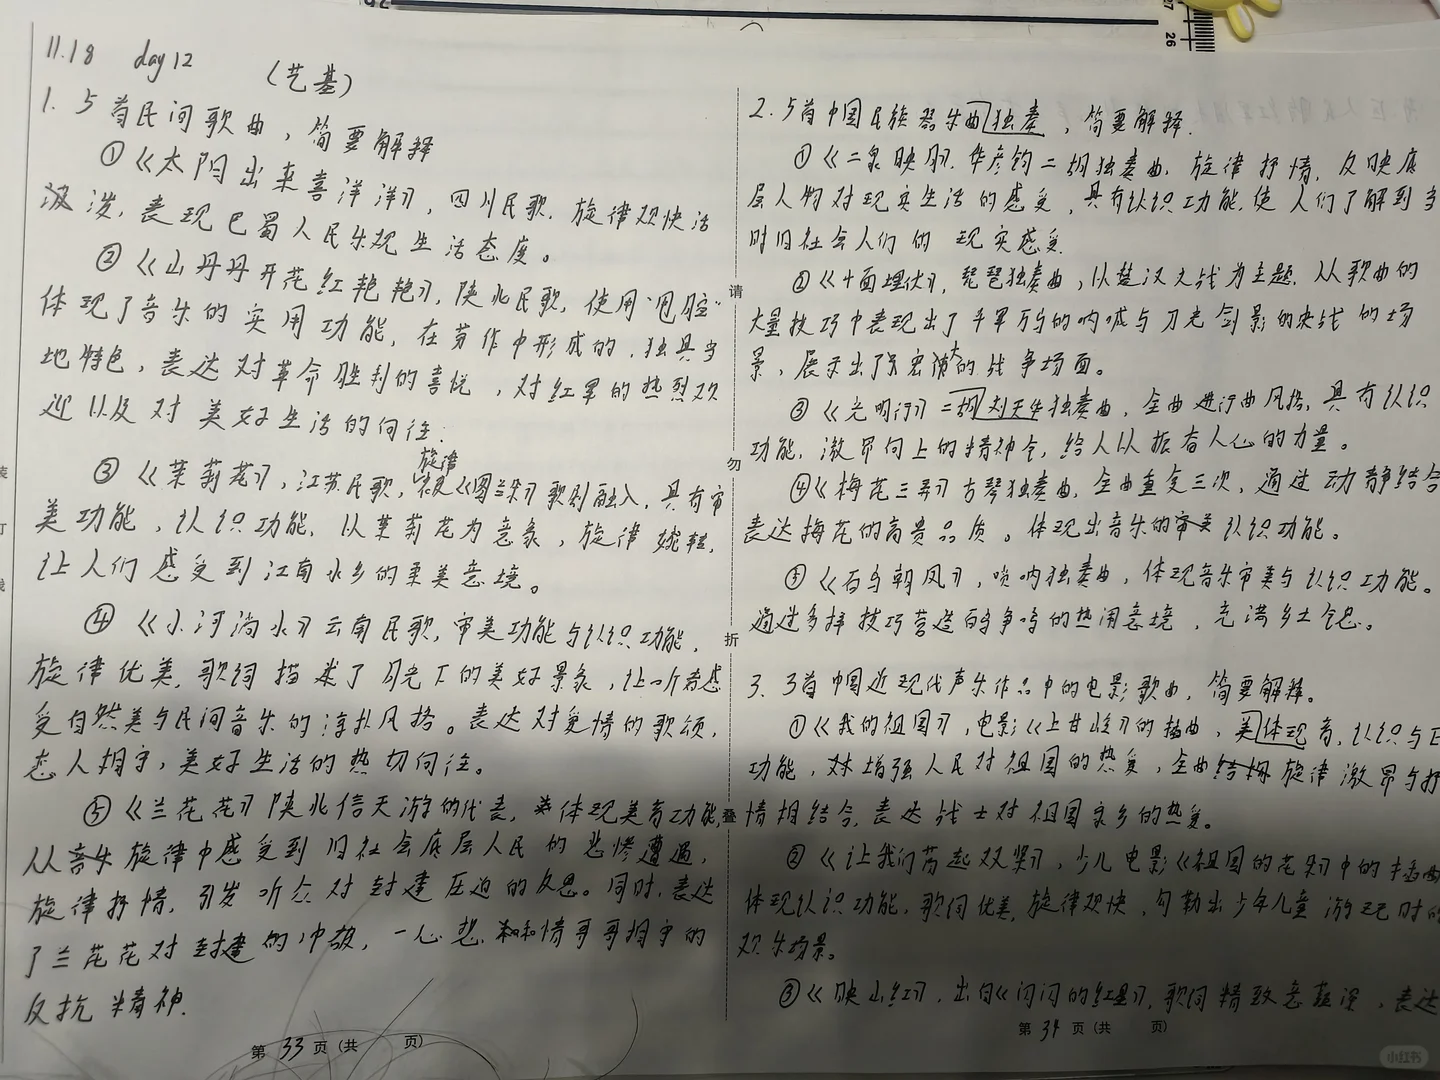 11.18 day12 （艺基）
1. 5首民间歌曲，简要解释
①《太阳出来喜洋洋》，四川民歌，旋律欢快活
泼，表现巴蜀人民乐观生活态度。
②《山丹丹开花红艳艳》，陕北民歌，使用"甩腔"
体现了音乐的实用功能，在劳作中形成的，独具当
地特色，表达对革命胜利的喜悦，对红军的热烈欢
迎以及对美好生活的向往.
③《茉莉花》，江苏民歌，旋律被《图兰朵》歌剧融入，具有审
美功能，认识功能，以茉莉花为意象，旋律婉转，
让人们感受到江南水乡的柔美意境。
④《小河淌水》云南民歌，审美功能与认识功能，
旋律优美，歌词描述了月光下的美好景象，让听者感
受自然美与民间音乐的淳朴风格。表达对爱情的歌颂，
恋人相守，美好生活的热切向往。
⑤《兰花花》陕北信天游的代表，体现美育功能，
从旋律中感受到旧社会底层人民的悲惨遭遇，
旋律抒情，引发听众对封建压迫的反思。同时，表达
了兰花花对封建的冲破，一心想和情哥哥相守的
反抗精神.
第 33 页（共 页）
请
勿
折
叠
装
订
线
2. 5首中国民族器乐曲独奏，简要解释.
①《二泉映月》，华彦钧二胡独奏曲，旋律抒情，反映底
层人物对现实生活的感受，具有认识功能，使人们了解到当
时旧社会人们的现实感受.
②《十面埋伏》，琵琶独奏曲，以楚汉大战为主题，从歌曲的
大量技巧中表现出了千军万马的呐喊与刀光剑影的决战的场
景，展示出了宏大的战争场面。
③《光明行》二胡刘天华独奏曲，全曲进行曲风格，具有认识
功能，激昂向上的精神令，给人以振奋人心的力量。
④《梅花三弄》古琴独奏曲，全曲重复三次，通过动静结合
表达梅花的高贵品质。体现出音乐的审美认识功能。
⑤《百鸟朝凤》，唢呐独奏曲，体现音乐审美与认识功能。
通过多样技巧营造百鸟争鸣的热闹意境，充满乡土气息。
3. 3首中国近现代声乐作品中的电影歌曲，简要解释。
①《我的祖国》，电影《上甘岭》的插曲，美体现育，认识与
功能，增强人民对祖国的热爱，全曲结构旋律激昂与抒
情相结合，表达战士对祖国家乡的热爱。
②《让我们荡起双桨》，少儿电影《祖国的花朵》中的插曲
体现认识功能，歌词优美，旋律欢快，勾勒出少年儿童游玩时的
欢乐场景。
③《映山红》，出自《闪闪的红星》，歌词精致意蕴深，表达
第 34 页（共 页）
小红书